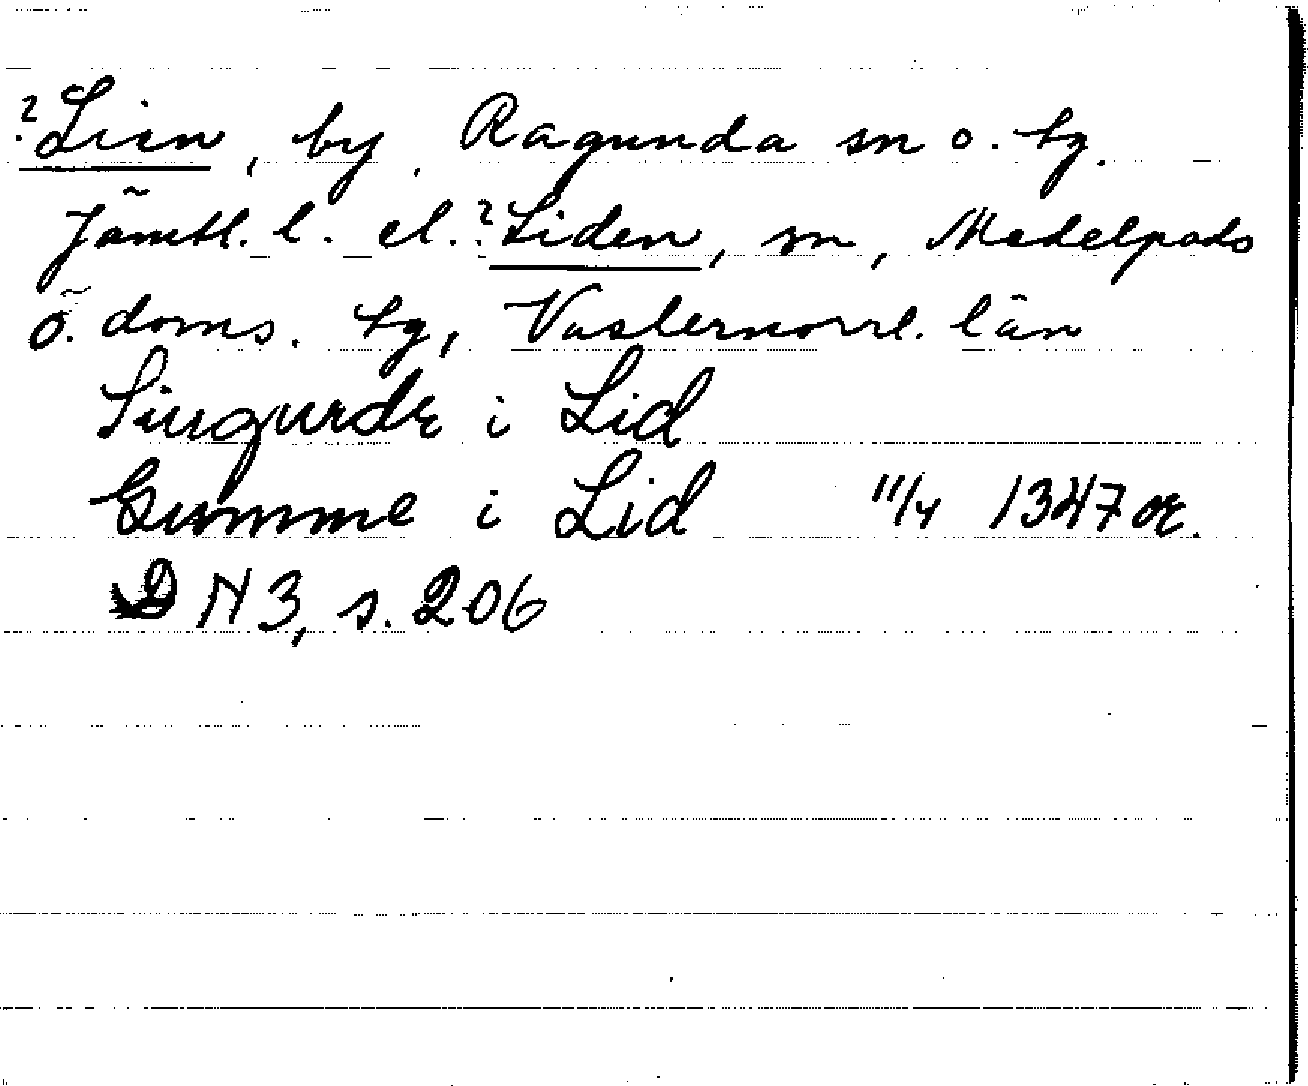 ?Lien, by, Ragunda sn o. tg.
Jämtl. l. el. ?Liden, sn, Medelpads
ö. doms. tg, Västernorrl. län
Siugurdr i Lid
Gumme i Lid 11/4 1347 or.
DN 3, s. 206